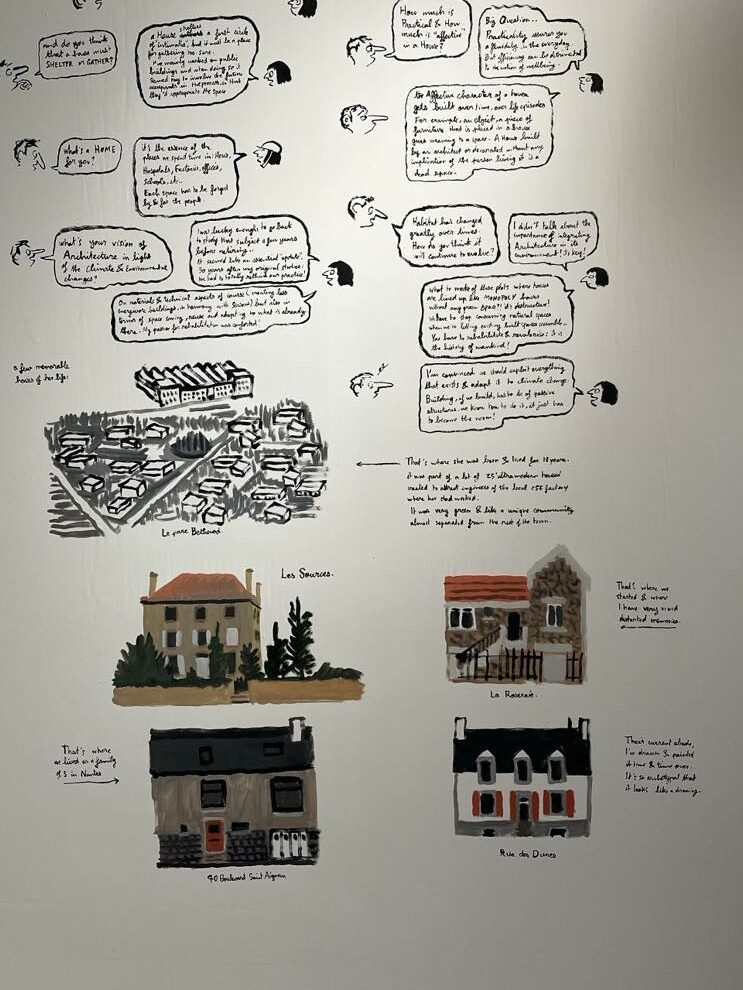 and do you think
that a house must
SHELTER or GATHER?
a House shelters a first circle
of intimates, but it will be a place
for gathering too sure.
I've mainly worked on public
buildings and when doing so it
seemed key to involve the future
occupants in the process so that
they'd appropriate the space
What's a HOME
for you?
it's the essence of the
places we spend time in: Homes,
Hospitals, Factories, offices,
Schools, etc..
Each space has to be forged
by & for the people.
What's your vision of
Architecture in light
of the Climate & Environmental
changes?
I was lucky enough to go back
to study that subject a few years
before retiring.
It seemed like an essential "update".
30 years after my original studies.
We had to totally rethink our practice!
On materials & technical aspects of course (inventing less
energivore buildings, in harmony with Seasons) but also in
terms of space saving, reuse and adapting to what is already
there. My passion for rehabilitation was comforted!
How much is
Practical & How
much is "affective"
in a House?
Big Question...
Practicality secures you
a fluidity in the everyday.
But efficiency can be detrimental
to the notion of wellbeing.
The Affective character of a house
gets built over time, over life episodes
For example, an object, a piece of
furniture that is placed in a house
gives meaning to a space. A House built
by an architect or decorated without any
implication of the person living it is a
dead space.
Habitat has changed
greatly over times.
How do you think it
will continue to evolve?
I didn't talk about the
importance of integrating
Architecture in its
environment! It's key!
What to make of these plots where houses
are lined up like MONOPOLY houses
without any green space?! it's destructive!
We have to stop consuming natural spaces
when we're letting existing built spaces crumble...
You have to rehabilitate & revalorize: it is
the history of mankind!
I'm convinced we should exploit everything
that exists & adapt it to climate change
Building, if we build, has to be of passive
structures. we know how to do it, it just has
to become the norm!
a few memorable
houses of her life:
Le parc Bellevard
That's where she was born & lived for 18 years.
it was part of a lot of 25 "ultramodern houses"
created to attract engineers of the local
factory
where her dad worked.
It was very green & like a unique community
almost separated from the rest of the town.
Les Sources.
La Roseraie.
That's where we
started & where
I have very vivid
distorted memories.
That's where
we lived as a family
of 5 in Nantes
40 Boulevard Saint Aignan
Rue des Dunes
Their current abode,
I've drawn & painted
it time & time over.
It's so archetypal that
it looks like a drawing.